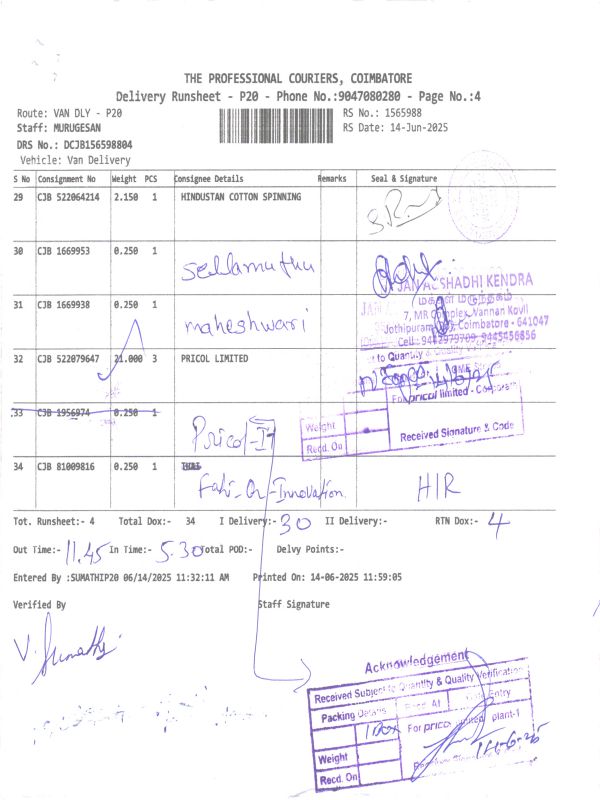 THE PROFESSIONAL COURIERS, COIMBATORE
Delivery Runsheet - P20 - Phone No.:9047080280 - Page No.:4
Route: VAN DLY - P20 RS No.: 1565988
Staff: MURUGESAN RS Date: 14-Jun-2025
DRS No.: DCJB156598804
Vehicle: Van Delivery
S No Consignment No Weight PCS Consignee Details Remarks Seal & Signature
29 CJB 522064214 2.150 1 HINDUSTAN COTTON SPINNING
30 CJB 1669953 0.250 1
Sellamuthu
JAN AUSHADHI KENDRA
மக்கள் மருந்தகம்
31 CJB 1669938 0.250 1
7, MR Complex, Vannan Kovil
maheshwari
Jothipuram Coimbatore - 641047
Cell: 9442979709, 9445456856
32 CJB 522079647 21.000 3 PRICOL LIMITED
to Quantity & Quality
For pricol limited - Corporate
33 CJB 1956974 0.250 1
Pricol-II
Weight
Recd. On
Received Signature & Code
34 CJB 81009816 0.250 1
Fahi-On-Innovation HIR
Tot. Runsheet:- 4 Total Dox:- 34 I Delivery:- 30 II Delivery:- RTN Dox:- 4
Out Time:- 11.45 In Time:- 5.30 Total POD:- Delvy Points:-
Entered By :SUMATHIP20 06/14/2025 11:32:11 AM Printed On: 14-06-2025 11:59:05
Verified By Staff Signature
V. Sumathi
Acknowledgement
Received Subject to Quantity & Quality Verification
Packing Details Recd. At Entry
1 Box For pricol limited plant-1
Weight
14-6-25
Recd. On